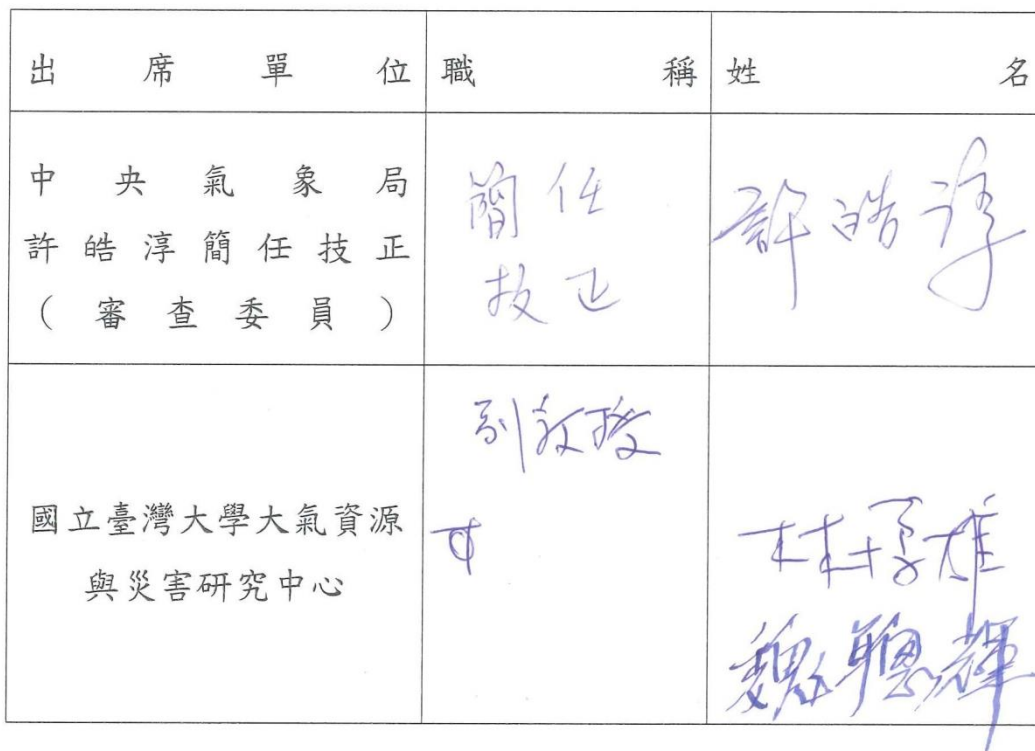 出席單位 職稱 姓名
中央氣象局
許皓淳簡任技正
(審查委員)
簡任
技正
許皓淳
國立臺灣大學大氣資源
與災害研究中心
副教授
林博雄
魏聰輝